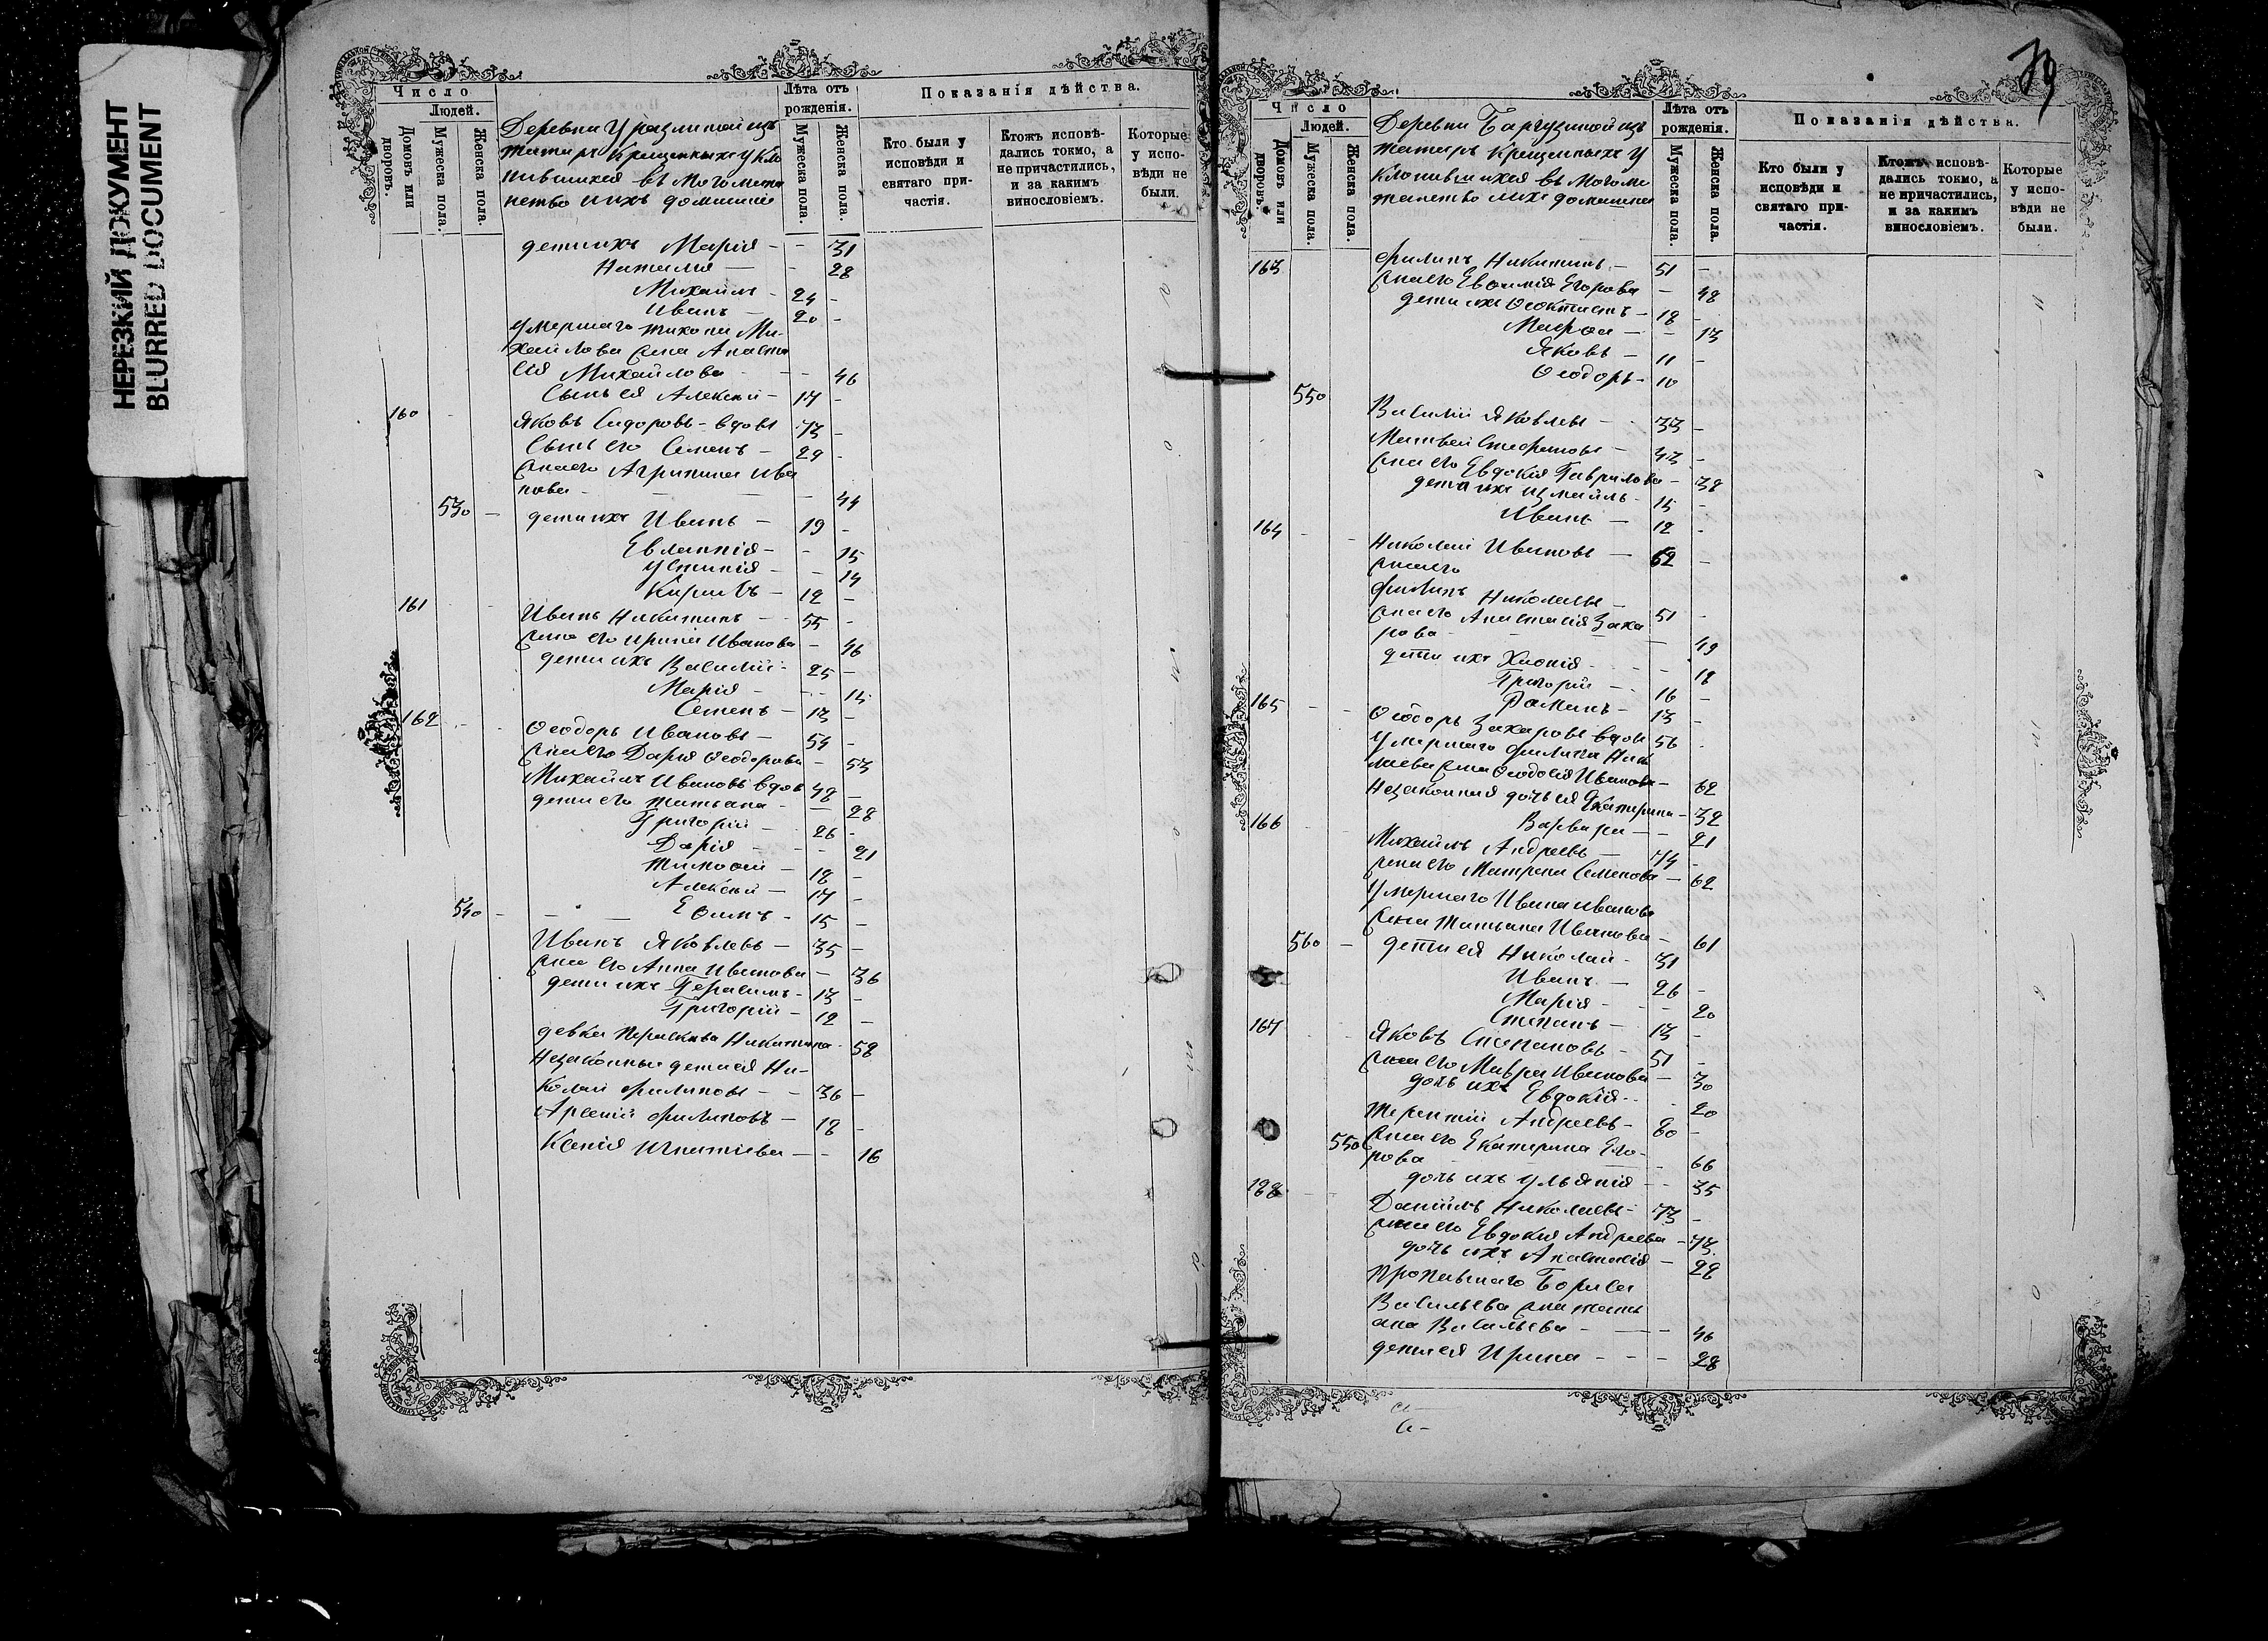 НЕРЕЗКИЙ ДОКУМЕНТ
BLURRED DOCUMENT
Число
Людей.
Домовъ или дворовъ.
Мужеска пола.
Женска пола.
Деревни Уразлиной изъ
татаръ крещенныхъ укло
нившихся въ могомета
нство и ихъ домашніи
Лѣта отъ рожденія.
Мужеска пола.
Женска пола.
Показанія дѣйства.
Кто были у исповѣди и святаго причастія.
Ктожъ исповѣдались токмо, а не причастились, и за какимъ винословіемъ.
Которые у исповѣди не были.
дети ихъ Марія - - 31
Наталія — - 28
Михаилъ - 24 -
Иванъ - 20 -
Умершаго Тихона Ми-
хайлова жена Анаста
сія Михайлова - - 46
Сынъ ея Алексѣй - 17 -
160 Яковъ Сидоровъ - вдовъ 73 -
Сынъ его Семенъ - 29 -
жена его Агрипина Ива
нова - - 44
530 - дети ихъ Иванъ - 19 -
Евлампія - - 15
Устинія - - 14
Кирилъ - 12 -
161 Иванъ Никитинъ - 55 -
жена его Ирина Иванова - 46
дети ихъ Василій - 25 -
Марія - - 15
Семенъ - 13 -
162 Ѳеодоръ Ивановъ - 54 -
жена его Дарія Ѳеодорова - 53
Михаилъ Ивановъ вдов 48 -
дети его Татьяна - - 28
Григорій - 26 -
Дарія - - 21
Тимоѳей - 18 -
Алексѣй - 17 -
540 - - — Ефимъ - 15 -
Иванъ Яковлевъ - 35 -
жена его Анна Иванова - 36
дети ихъ Герасимъ - 13 -
Григорій - 12 -
девка Параскева Никитина - 58
Незаконные дети ея Ни-
колай Филиповъ - - 36 -
Арсеній Филиповъ - 18 -
Ксенія Игнатіева - - 16
79
Число
Людей.
Домовъ или дворовъ.
Мужеска пола.
Женска пола.
Деревни Баргузиной изъ
татаръ крещенныхъ у
клонившихся въ могоме
танство и ихъ домашніи
Лѣта отъ рожденія.
Мужеска пола.
Женска пола.
Показанія дѣйства.
Кто были у исповѣди и святаго причастія.
Ктожъ исповѣдались токмо, а не причастились, и за какимъ винословіемъ.
Которые у исповѣди не были.
163 Филипъ Никитинъ - 51 -
жена его Евфимія Егорова - 48
дети ихъ Ѳеоктистъ - 18 -
Марфа - - 13
Яковъ - 11 -
Ѳеодоръ - 10
550
Василій Яковлевъ - 33 -
Матвей Стефановъ - 43 -
жена его Евдокія Гаврилова - 38
дети ихъ Измаилъ - 15 -
Иванъ - 12 -
164 - - Николай Ивановъ - 62 -
жена его
Филипъ Николаевъ - 51 -
жена его Анастасія Заха
рова - - 49
дети ихъ Хіонія - - 18
Григорій - 16 -
Романъ - 13 -
165 - - Ѳеодоръ Захаровъ вдов 56 -
Умершаго Филипа Нико
лаева жена Ѳеодосія Иванова - 62
Незаконная дочь ея Екатирина - 32
Варвара - - 21
166 Михаилъ Андреевъ - 74 -
жена его Матрена Семенова - 62
Умершаго Ивана Иванова
жена Татьяна Иванова - 61
560 - дети ея Николай - 31
Иванъ - 26 -
Марія - - 20
Степанъ - 13 -
167 Яковъ Степановъ - 51 -
жена его Мавра Иванова - 30
дочь ихъ Евдокія - - 20
Терентій Андреевъ - 80 -
550 жена его Екатирина Его-
рова - - 66
дочь ихъ Ульянія - - 35
188 - - Даніилъ Николаевъ - 73 -
жена его Евдокія Андреева - 73
дочь ихъ Анастасія - 28
Пропавшаго Бориса
Васильева жена Тать
яна Васильева - - 46
дети ея Ирина - - - 28